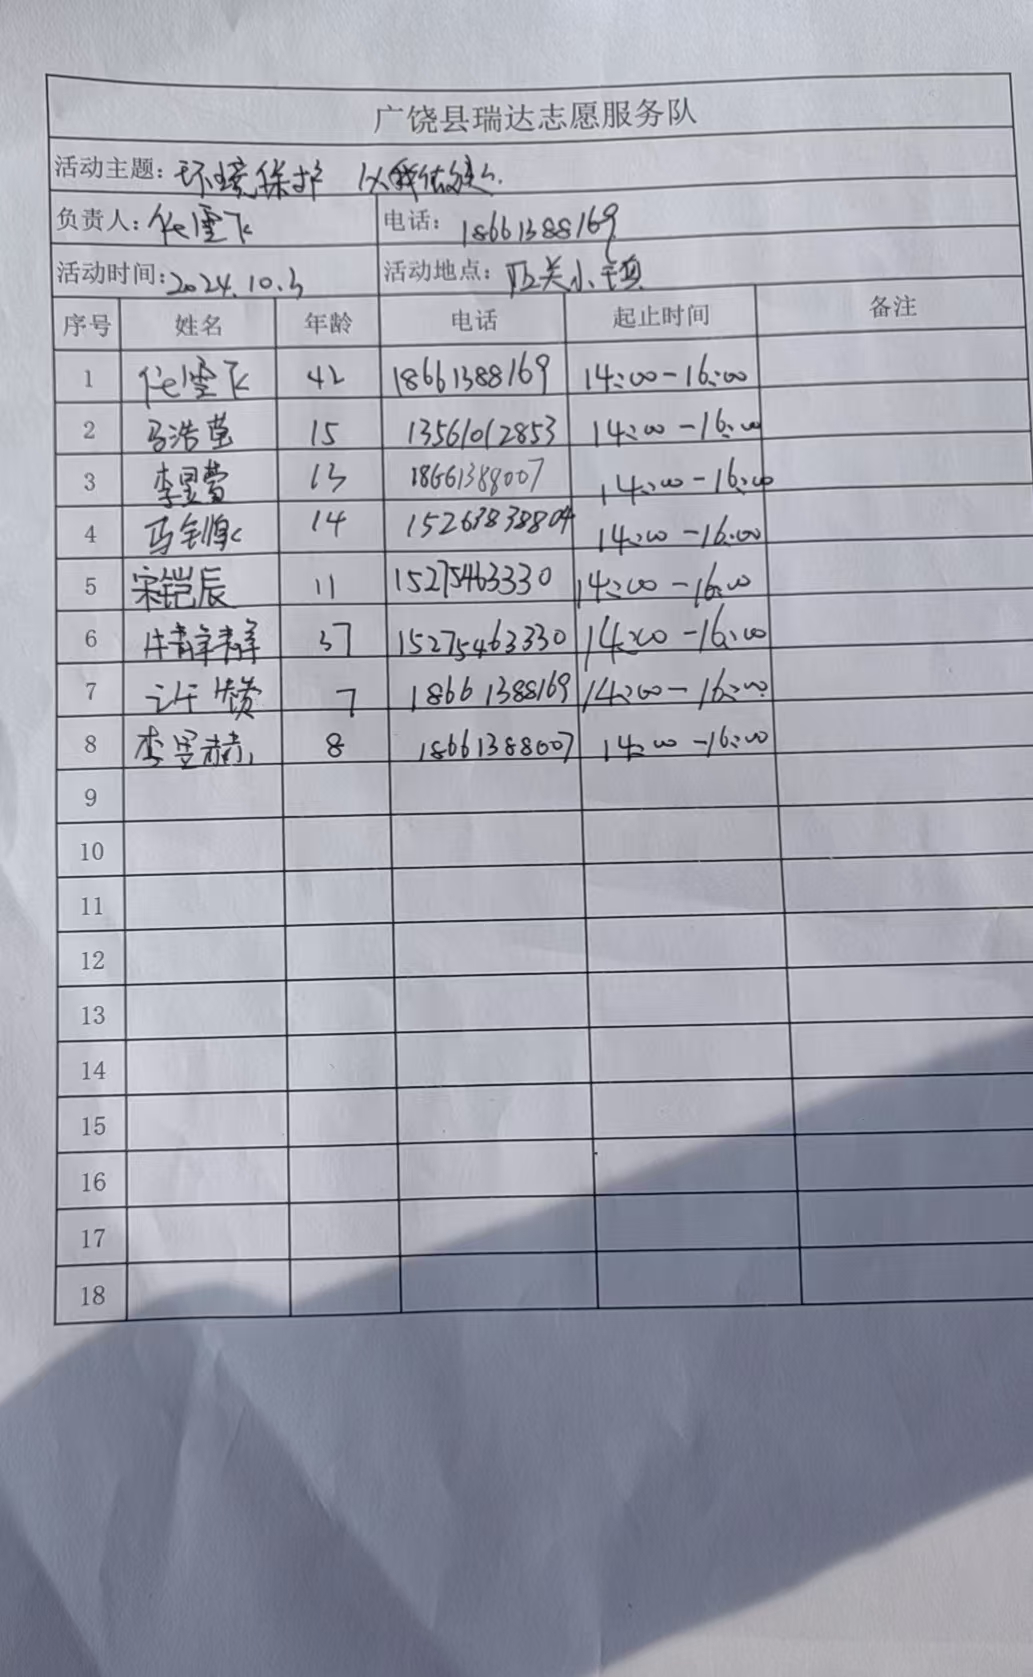 广饶县瑞达志愿服务队
活动主题: 环境保护 从我做起
负责人: 代雪飞 电话: 18661388169
活动时间: 2024.10.3 活动地点: 西关小镇
序号 姓名 年龄 电话 起止时间 备注
1 代雪飞 42 18661388169 14:00-16:00
2 马浩 15 13561012853 14:00-16:00
3 李昱萱 13 18661388007 14:00-16:00
4 马 14 15263838804 14:00-16:00
5 宋铠辰 11 15275463330 14:00-16:00
6 静静 37 15275463330 14:00-16:00
7 7 18661388169 14:00-16:00
8 李昱赫 8 18661388007 14:00-16:00
9
10
11
12
13
14
15
16
17
18